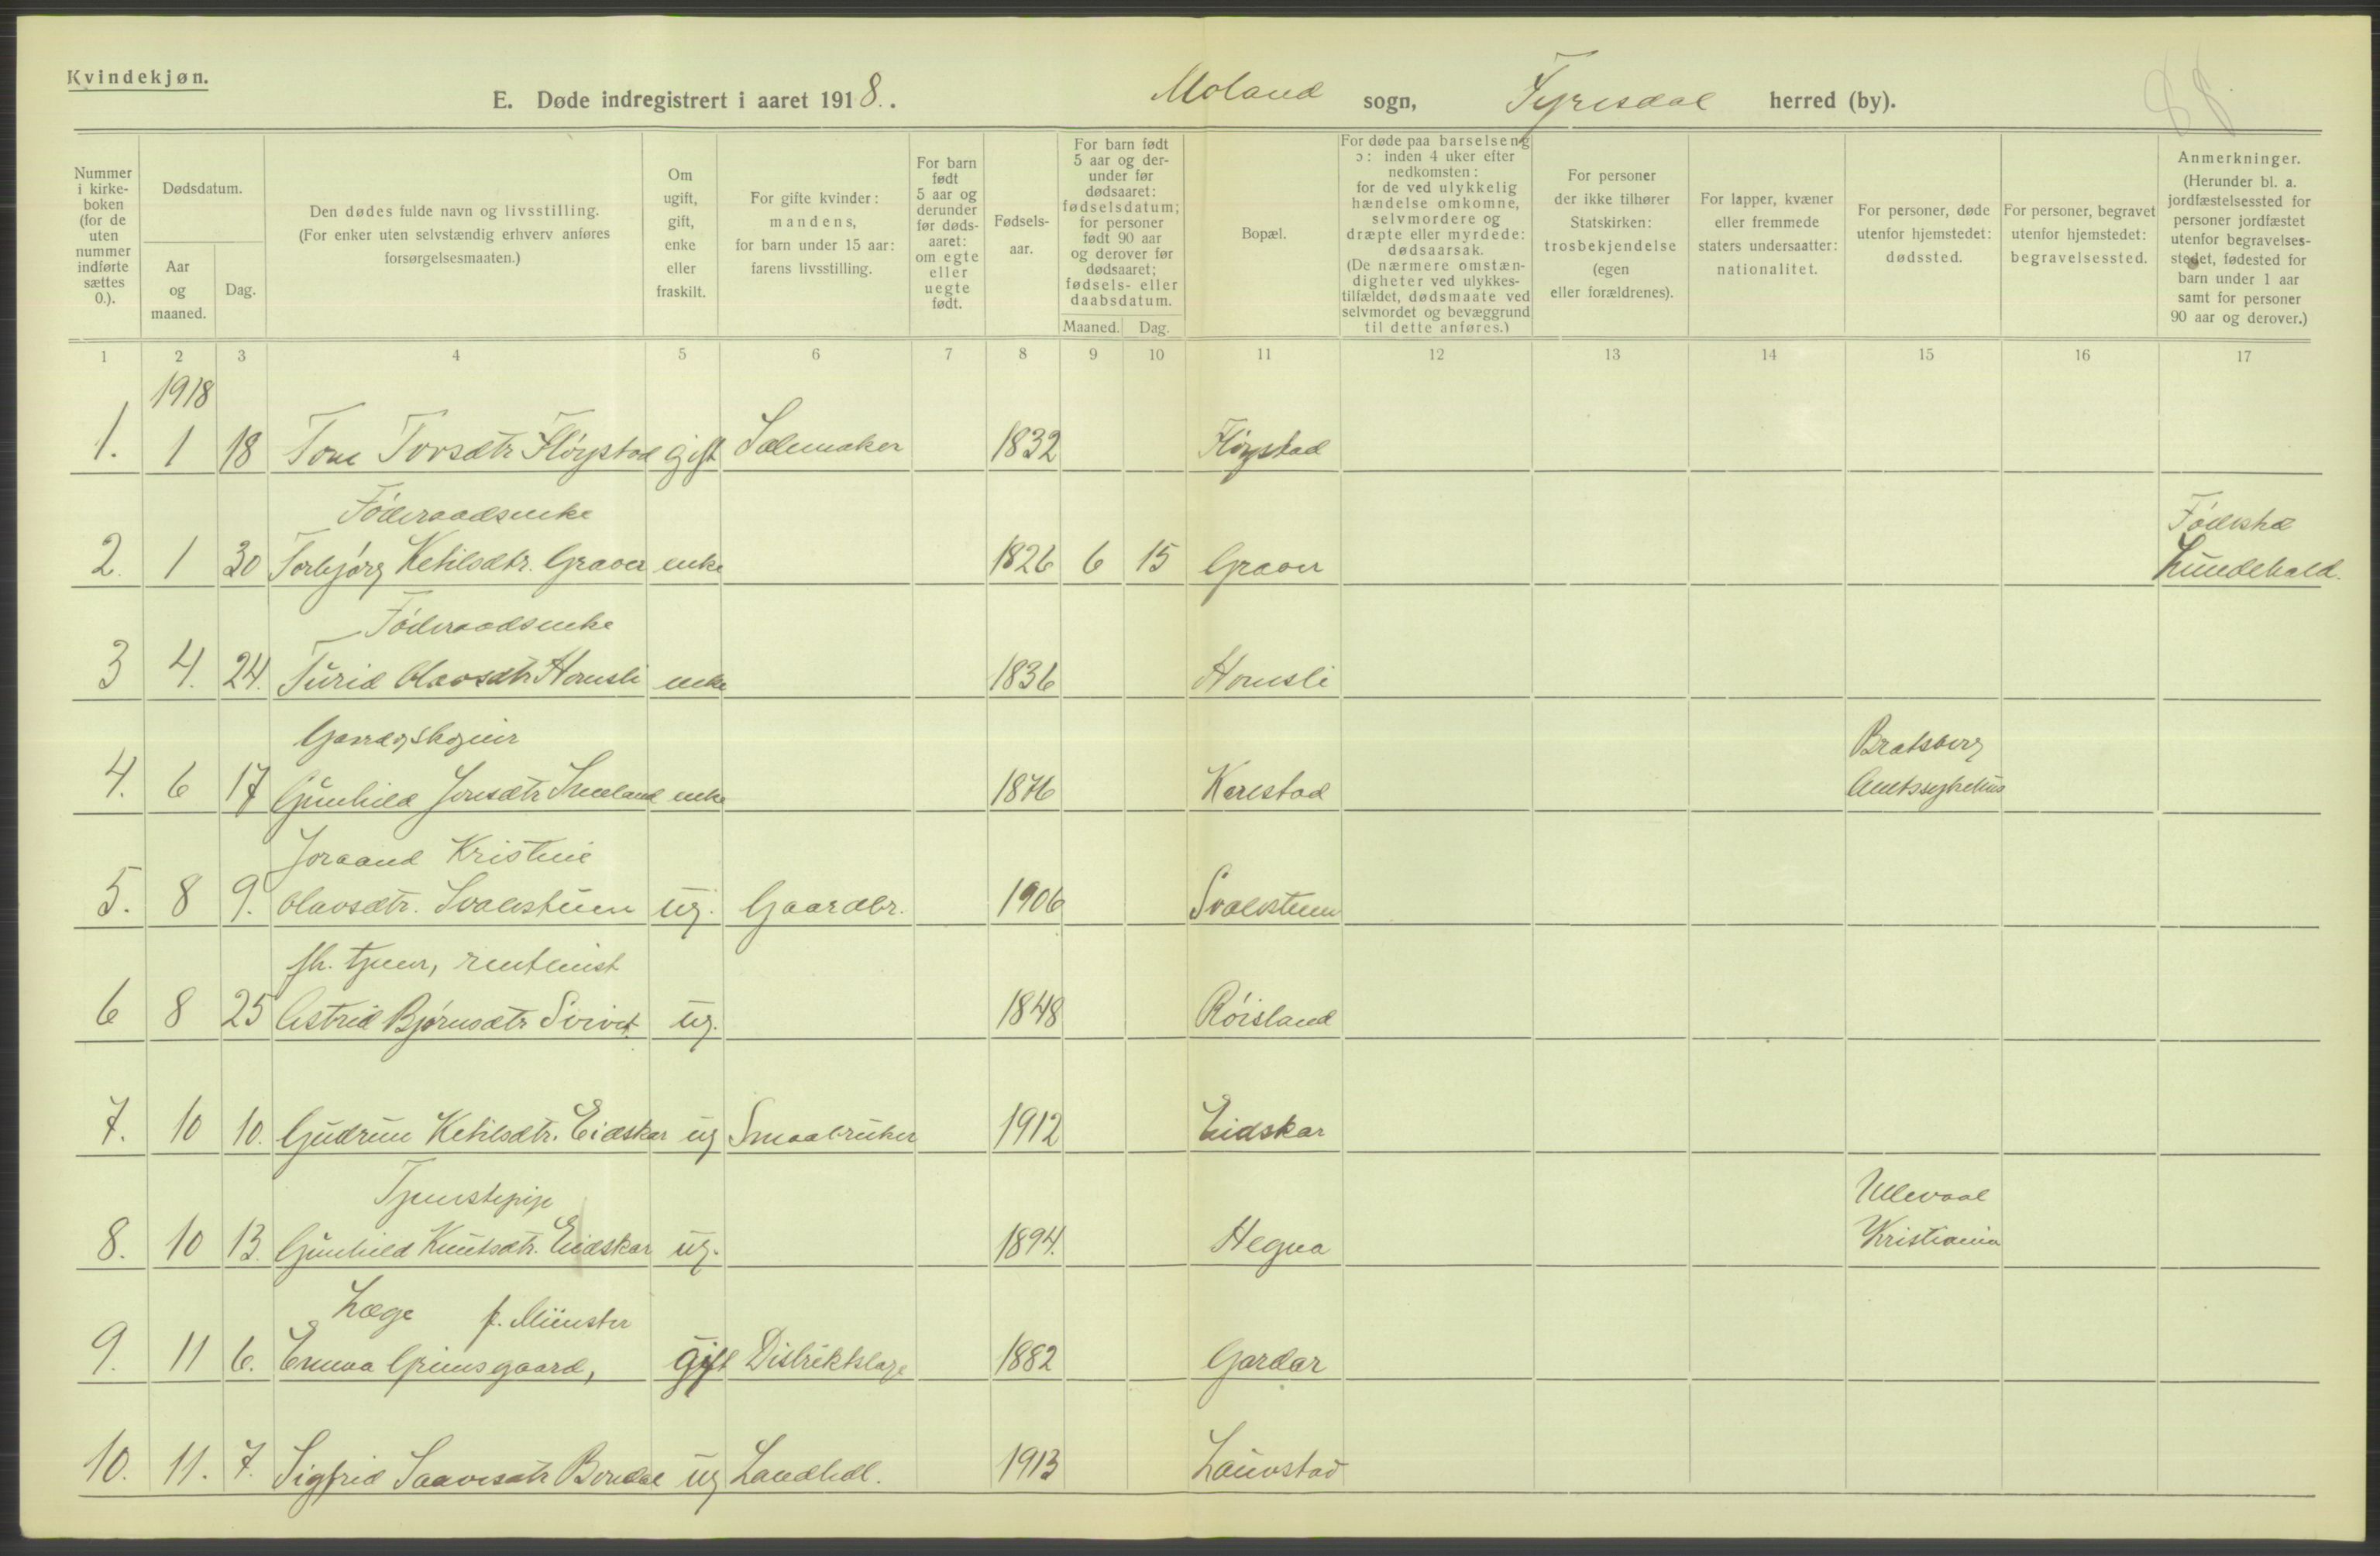 Kvindekjøn.
E. Døde indregistrert i aaret 1918. Moland sogn, Tyresdal herred (by).
88
Nummer i kirkeboken (for de uten nummer indførte sættes 0.).
Dødsdatum.
Aar og maaned.
Dag.
Den dødes fulde navn og livsstilling. (For enker uten selvstændig erhverv anføres forsørgelsesmaaten.)
Om ugift, gift, enke eller fraskilt.
For gifte kvinder: mandens, for barn under 15 aar: farens livsstilling.
For barn født 5 aar og derunder før dødsaaret: om egte eller uegte født.
Fødselsaar.
For barn født 5 aar og derunder før dødsaaret: fødselsdatum; for personer født 90 aar og derover før dødsaaret; fødsels- eller daabsdatum.
Maaned. Dag.
Bopæl.
For døde paa barselseng ɔ: inden 4 uker efter nedkomsten: for de ved ulykkelig hændelse omkomne, selvmordere og dræpte eller myrdede: dødsaarsak. (De nærmere omstændigheter ved ulykkestilfældet, dødsmaate ved selvmordet og bevæggrund til dette anføres.)
For personer der ikke tilhører Statskirken: trosbekjendelse (egen eller forældrenes).
For lapper, kvæner eller fremmede staters undersaatter: nationalitet.
For personer, døde utenfor hjemstedet: dødssted.
For personer, begravet utenfor hjemstedet: begravelsessted.
Anmerkninger. (Herunder bl. a. jordfæstelsessted for personer jordfæstet utenfor begravelsesstedet, fødested for barn under 1 aar samt for personer 90 aar og derover.)
1 2 3 4 5 6 7 8 9 10 11 12 13 14 15 16 17
1918
1. 1 18 Tone Torsdtr Fløystad gift Salemaker 1832 Fløystad
Føderaadsenke Fødested
2. 1 30 Torbjørg Ketilsdtr. Graver enke 1826 6 15 Graver Lundehald.
Føderaadsenke
3 4. 24. Turid Olavsdtr Homsli enke 1836 Homsli
Bratsberg
4. 6 17 Gunhild Jonsdtr Smeland enke 1876 Kerestad Amtssykehus
Joraand Kristine
5. 8 9. Olavsdtr. Svalestuen ug. Gaardbr. 1906 Svalestuen
fh. tjener, rentenist
6 8 25 Astrid Bjørnsdtr Sivert ug. 1848 Røisland
7. 10 10. Gudrun Ketilsdtr. Eidskar ug Smaabruker 1912 Eidskar
Tjenstepige Ullevaal
8. 10 13. Gunhild Knutsdtr. Eidskar ug. 1894. Hegna Kristiania
Læge f. Münster
9. 11 6. Emma Grimsgaard, gift Distriktslæge 1882 Gardar
10. 11. 7. Sigfrid Saavesdtr Bondal ug Landhdl. 1913 Lauvstad